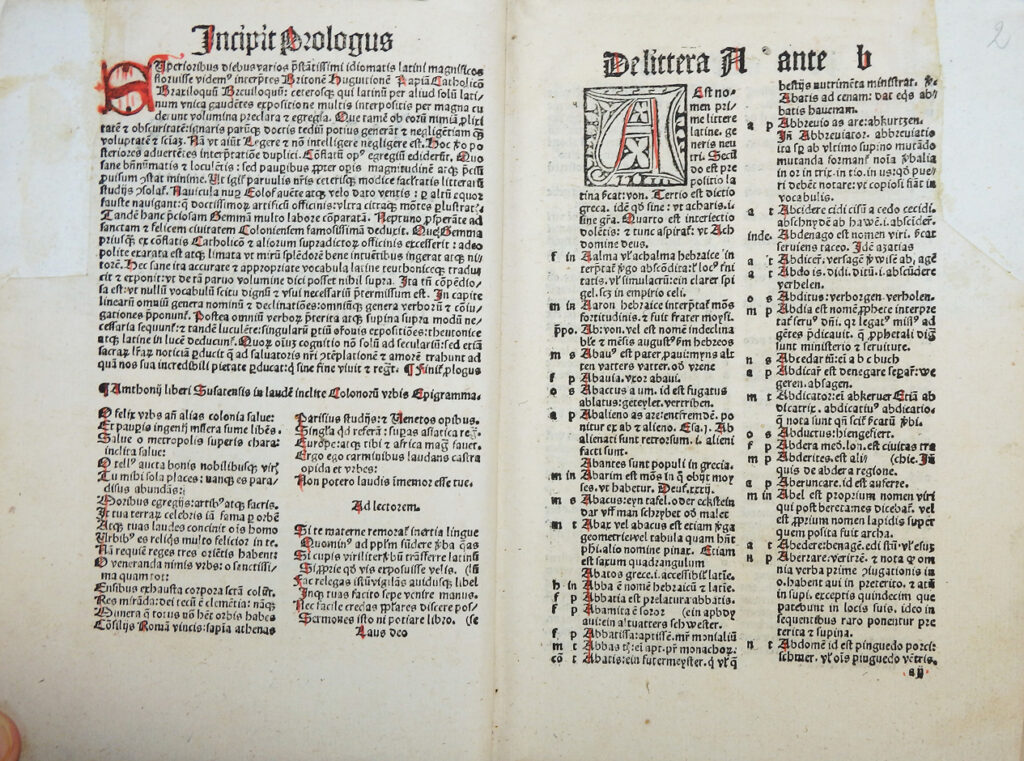 Incipit Prologus
Superioribus diebus varios p̄stātissimi idiomatis latini magnificos
floruisse videm⁹ interp̄tes Britonē Huguitionē Papiā Catholicō
Braxiloquū Breuiloquū: ceterosqꝫ qui latinū per aliud solū lati-
num vnica gaudētes expositione multis interpositis per magna cu
de unt volumina preclara et egregia. Que tamē ob eorū nimiā plixi
tatē et obscuritatē: ignaris parūqꝫ doctis tediū potius generāt et negligentiam qꝫ
voluptatē et sciaꝫ. Nā vt aiūt Legere et nō intelligere negligere est. Hoc
steriores aduertētes interpretatiōne duplici. Cōflatū op⁹ egregiū ediderūt. Quo
sane bn̄numatis et loculētis: sed paupib⁹ pter opis magnitudinē atqꝫ pcii
puisum ē stat minime. Ut igit̄ paruulis nr̄is ceterisqꝫ modice facultatis litterarū
studijs ꝯsolat̄. Nauicula nuꝑ Eolo fauēte atqꝫ velo dato ventis: ꝑ altū equor
fauste nauigant: qꝫ doctissimoꝝ artificū officinis: vltra citraqꝫ mōtes plustrat̄.
Tandē hanc pciosam Gemmā multo labore cōparatā. Neptuno psperāte ad
sanctam et felicem ciuitatem Coloniensem famosissimā deduxit. Que Gemma
priusqꝫ ex cōflatis Catholicō et aliorum supradictoꝝ officinis excesserit: adeo
polite exarata est atqꝫ limata vt mirū splēdorē bene intuētibus ingerat atqꝫ ni-
torē. Hec sane ita accurate et appropriate vocabula latine teuthoniceqꝫ tradu,
cit et exponit: vt de tā paruo volumine dici posset nihil supra. Ita tn̄ cōpēdio,
sa est: vt nullū vocabulū scitu dignū et vsui necessariū ptermissum est. In capite
linearū omniū genera nominū et declinatiōes: omniūqꝫ genera verborū et cōiu,
gationes pponunt̄. Postea omniū verboꝝ pterita atqꝫ supina supra modū ne-
cessaria sequunt̄: et tandē luculēte: singularū priū orōnis expositiōes: theutonice
atqꝫ latine in lucē deducunt̄. Quoꝝ oīus cognitio nō solū ad seculariū: sed etiā
sacraꝝ lr̄aꝝ noticiā pducit qꝫ ad saluatoris nr̄i ꝯtēplationē et amorē trahunt ad
quā nos sua incredibili pietate pducat: qui sine fine viuit et regt̄. ¶ Finit ꝓlogus
¶ Anthonij liberi Susatensis in laudē inclite Colonorū vrbis Epigramma.
O felix vrbs an̄ alias colonia salue:
Et paupis ingenij mūera sume libēs.
Salue o metropolis superis chara:
inclita salue:
O tell⁹ aucta bonis nobilibusqꝫ viris
Tu mihi sola places: uanqꝫ es para-
disus abundās:
Moribus egregijs: artib⁹ atqꝫ sacris.
It tua terraꝝ celebris iā fama ꝑ orbē
Atqꝫ tuas laudes concinit ois homo
Urbib⁹ es reliqis multo felicior in te.
Nā requiē reges tres oriētis habent
O veneranda nimis vrbs: o sanctissi-
ma quam tot:
Ensibus exhausta corpora serā colūt.
Res mirāda: dei tecū ē clemētia: nāqꝫ
Munera qꝫ totus vix het orbis habes
Cōsilijs Romā vincis: sapīa athenas
Parisius studijs: et Venetos opibus.
Singla qd referā: supas asiatica regna
Europe: atqꝫ tibi et africa mag̃ fauet.
Ergo ego carminibus laudans castra
opida et vrbes:
Non potero laudis īmemor esse tue.
Ad lectorem.
Si te materne remorat̄ inertia lingue
Quomin⁹ ad ppsm̄ fūdere ꝟba qas
Si cupis viriliter ꝟbū trāsferre latinū
Sīꝫprie qd vis exposuisse velis.
Fac relegas istū vigilās auidusqꝫ libel
Inqꝫ tuas facito sepe venire manus.
Nec facile credas pprares discere pos/
Sermones isto ni potiare libro. (se
Laus deo
De littera A ante b
Est no-
men pri,
me littere
latine. ge
neris neu
tri. Secū
do est pre
positio la
tina ꝼcat: von. Tertio est dictio
greca. idē qd sine: vt acharis. i.
sine gr̄a. Quarto est interiectio
dolētis: et tunc aspirat̄: vt Ach
domine deus.
f in Aalma vl̓ achalma hebraice in
terptat̄ ꝟgo abscōdita: l̓ loc⁹ fini
tatis. vl̓ simulacrū: ein clarer spi
gel. szꝫ in empirio celi.
m in Aaron hebraice interptat̄ mōs
fortitudinis. et fuit frater moysi.
ppo. Ab: von. vel est nomē indeclina
ble et mēsis august⁹ ꝼm hebreos
m s Abau⁹ est pater.paui: myns alt
ten vatters vatter. od̓ vrene
f p Abauia. vxor abaui.
o s Abactus a um. id est fugatus
ablatus: geteylet. vertriben.
a p Abalieno as are: entfremdē. po
nitur ex ab et alieno. Esa. j. Ab
alienati sunt retrorsum. i. alieni
facti sunt.
Abantes sunt populi in grecia.
m in Abarim est mōs in q̄ obijt moy
ses. vt habetur. Deut. xxxij.
m s Abacus: eyn tafel. oder eckstein
dar vff man schrybet od̓ malet
m t Abax vel abacus est etiam ꝟga
geometrice vel tabula quam hn̄t
phi. alio nomine pinax. Etiam
est saxum quadrangulum
Abatos grece. i. accessibil̓ latīe.
h in Abba ē nomē hebraicū et latīe.
f p Abbatia est prelatura abbatis.
f p Abamita ē soror (ein apbdy
aui: ein altuatters schwester.
f p Abbatissa: aptissē. mr̄ monialiū
m t Abbas tis: ei apt. pr̄ monachoꝝ.
cō t Abatis: ein futermeyster. q̄ vl̓ q̄
bestijs nutrimēta ministrat. Ꝟs.
Abatis ad cenam: dat eqs ab/
batis hauenam.
a p Abbreuio as are: abkurtzen.
In̄ Abbreuiator. abbreuiatio
ita ꝙ ab vltimo supino mutādo
mutanda formant̄ noīa ꝟbalia
in or in trix. in tio. in us: qd pue
ri debēt notare: vt copiosi fiāt in
vocabulis.
a t Abcidere cidi cisū a cedo cecidi.
abschnydē ab hawē. i. abscider.
inde. Abdenago est nomen viri. ꝼcat
seruiens taceo. Idē azatias
a t Abdicer: versagē ꝑ wise ab, agē
a t Abdo is. didi. ditū. i. abscūdere
verhelen.
o s Abditus: verborgen. verholen.
m p Abdia est nomē ꝓphete interpre
tat̄ seru⁹ dn̄i. qꝫ legat⁹ miss⁹ ad
gētes pdicauit. qꝫ pphetali digi
sunt ministerio et seruiture.
n s Abcedariū: ei a b c buch
a p Abdicar̄ est denegare separ̄: we
geren. absagen.
m t Abdicator: ei abkerver Etiā ab
dicatrix. abdicatiu⁹ abdicatio.
q̄ nota sunt qn̄ scif ꝼcatū ꝟbi.
o s Abductus: hiengefiert.
f p Abdera me⁹. lon. est ciuitas tra
m p Abderites. est ali⁹ (chie. In̄
quis de abdera regione.
a p Aberuncare. id est auferre.
m in Abel est proprium nomen viri
qui post beretames dicebat̄. vel
est pprium nomen lapidis super
quem posita fuit archa.
a t Abedere: benagē. edi estū: vl̓ esuȝ
n p Abertare. vei: irzē. et nota ꝙ om
nia verba prime piugationis in
o. habent aui in preterito. et atū
in supi. exceptis quindecim que
patebunt in locis suis. ideo in
sequentibus raro ponentur pre
terita et supina.
n t Abdomē id est pinguedo porci:
schmer. vl̓ ois piuguedo vētris.
aij
2